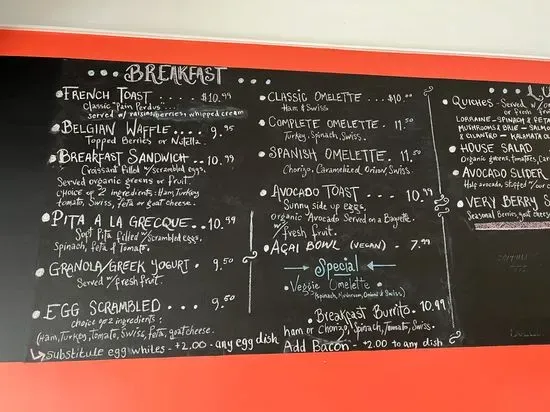 BREAKFAST
FRENCH TOAST $10.99
Classic "Pain Perdus"...
served w/ raisins berries whipped cream
BELGIAN WAFFLE.... 9.95
Topped Berries or Nutella.
BREAKFAST SANDWICH.. 10.99
Croissant filled w/ scrambled eggs,
Served organic greens or fruit.
choice of 2 ingredients: Ham, Turkey
tomato, Swiss, feta or goat cheese.
PITA A LA GRECQUE... 10.99
Soft Pita filled w/ scrambled eggs,
Spinach, feta & tomato.
GRANOLA/GREEK YOGURT . 9.50
Served w/ fresh fruit.
EGG SCRAMBLED .... 9.50
choice of 2 ingredients:
(Ham, Turkey, Tomato, Swiss, feta, goat cheese.
substitute egg whites - +2.00 - any egg dish
CLASSIC OMELETTE ... $10.00
Ham & Swiss
COMPLETE OMELETTE .... 11.50
Turkey, Spinach, Swiss.
SPANISH OMELETTE .... 11.50
Chorizo, Caramelized Onion, Swiss.
AVOCADO TOAST ..... 10.99
Sunny side up eggs.
organic Avocado Served on a Bagette.
w/ fresh fruit.
AÇAI BOWL (VEGAN) - 7.99
Special
Veggie Omelette
(spinach, Mushroom, Onion & Swiss)
Breakfast Burrito. 10.99
ham or Chorizo, Spinach, Tomato, Swiss.
Add Bacon - +2.00 to any dish
QUICHES - Served w/
or fresh
LORRAINE - SPINACH &
MUSHROOMS & BRIE -
& CILANTRO - KALAMATA
HOUSE SALAD
Organic greens, tomatoes,
AVOCADO SLIDER
Half avocado,
VERY BERRY
Seasonal Berries, goat cheese